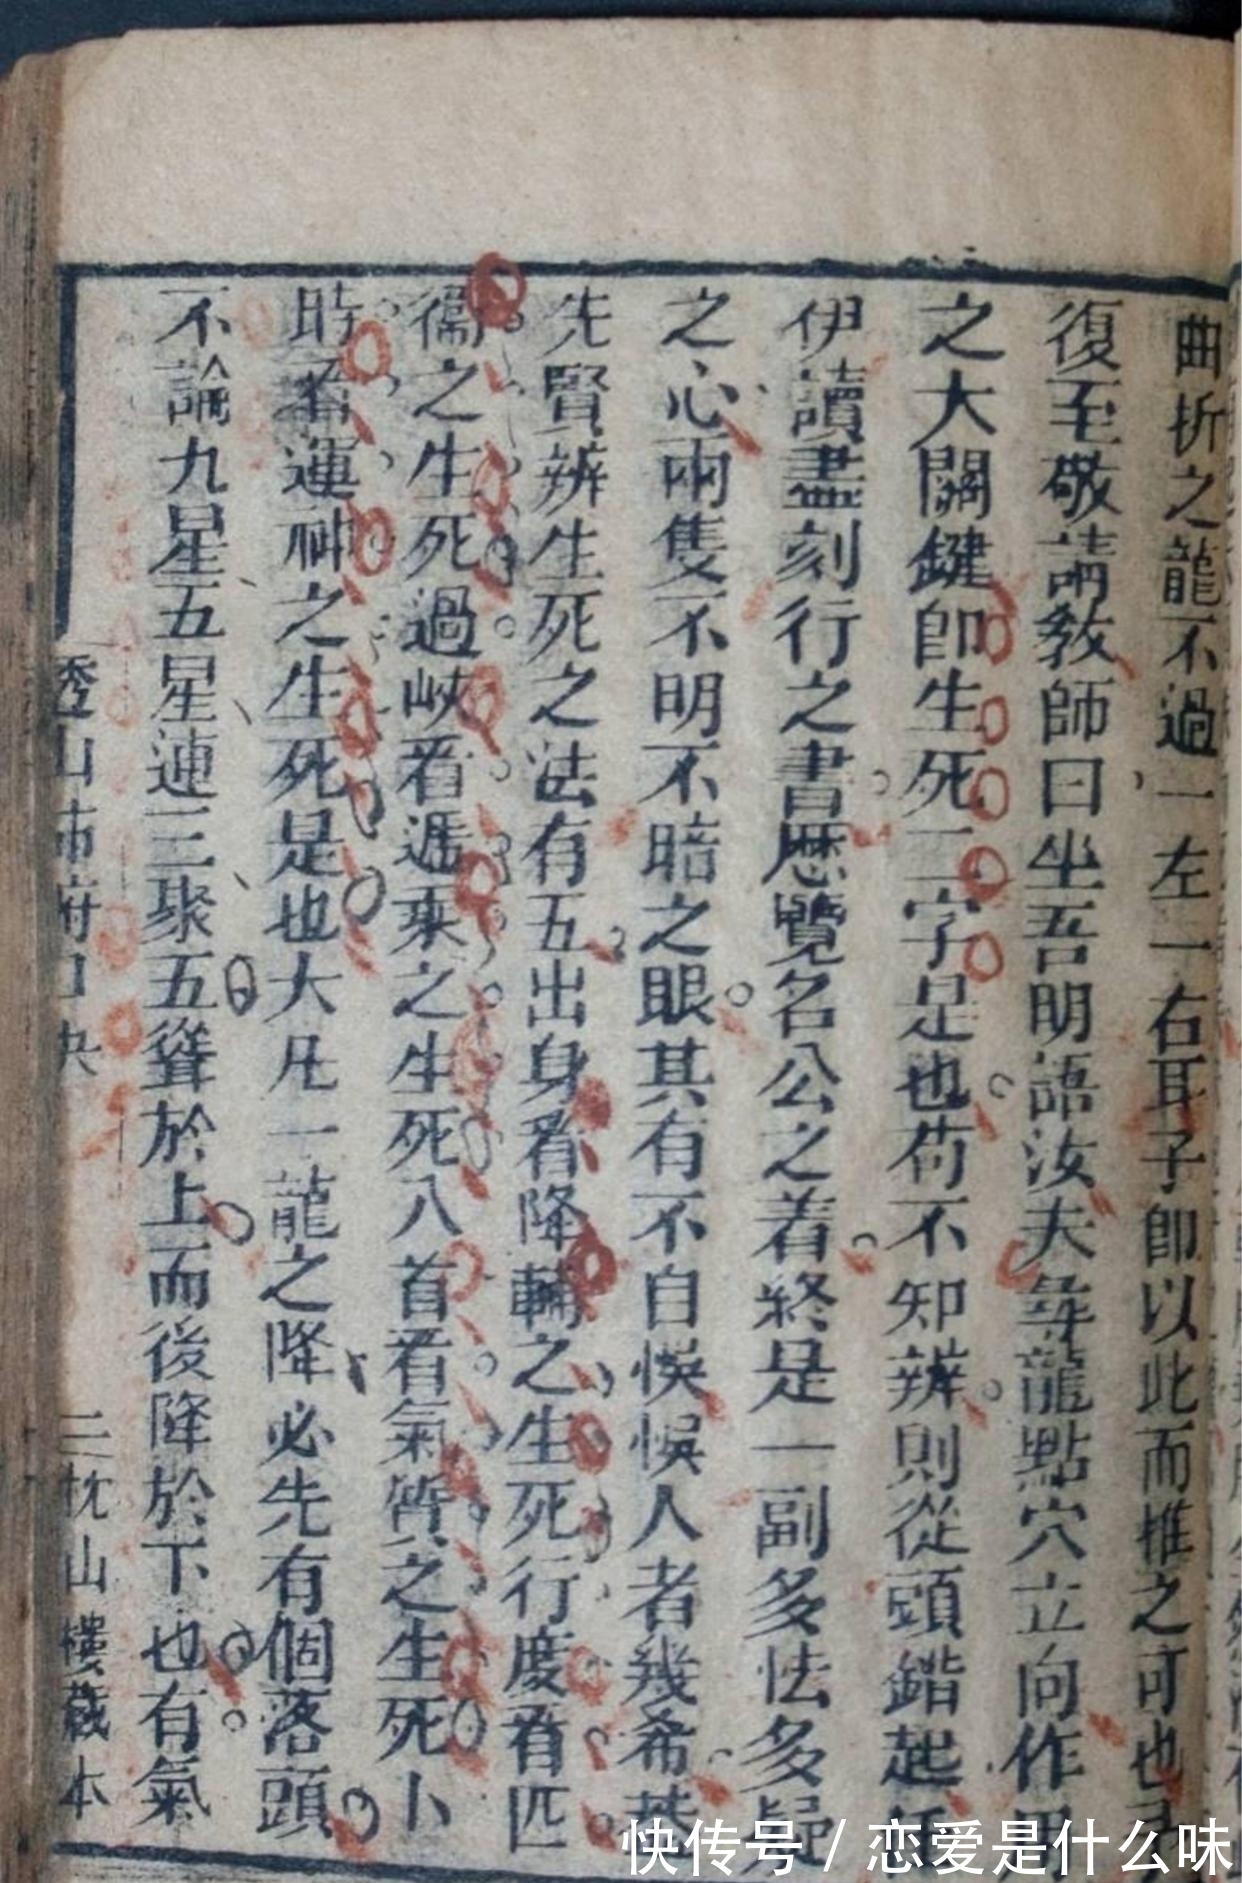 曲折之龍不過一左一右耳子即以此而推之可也
復至敬請教師曰坐吾明語汝夫尋龍點穴立向作用
之大關鍵即生死二字是也苟不知辨則從頭錯起任
伊讀盡刻行之書歷覽名公之着終是一副多怯多疑
之心兩隻不明不暗之眼其有不自悞悞人者幾希其
先賢辨生死之法有五出身看降輪之生死行度看匹
之生死過峽看遞乘之生死八首看氣質之生死卜
時看運神之生死是也大凡一龍之降必先有個落頭
不論九星五星連三聚五聳於上而後降於下也有氣
透山
二 枕山樓藏本
快传号 / 恋爱是什么味